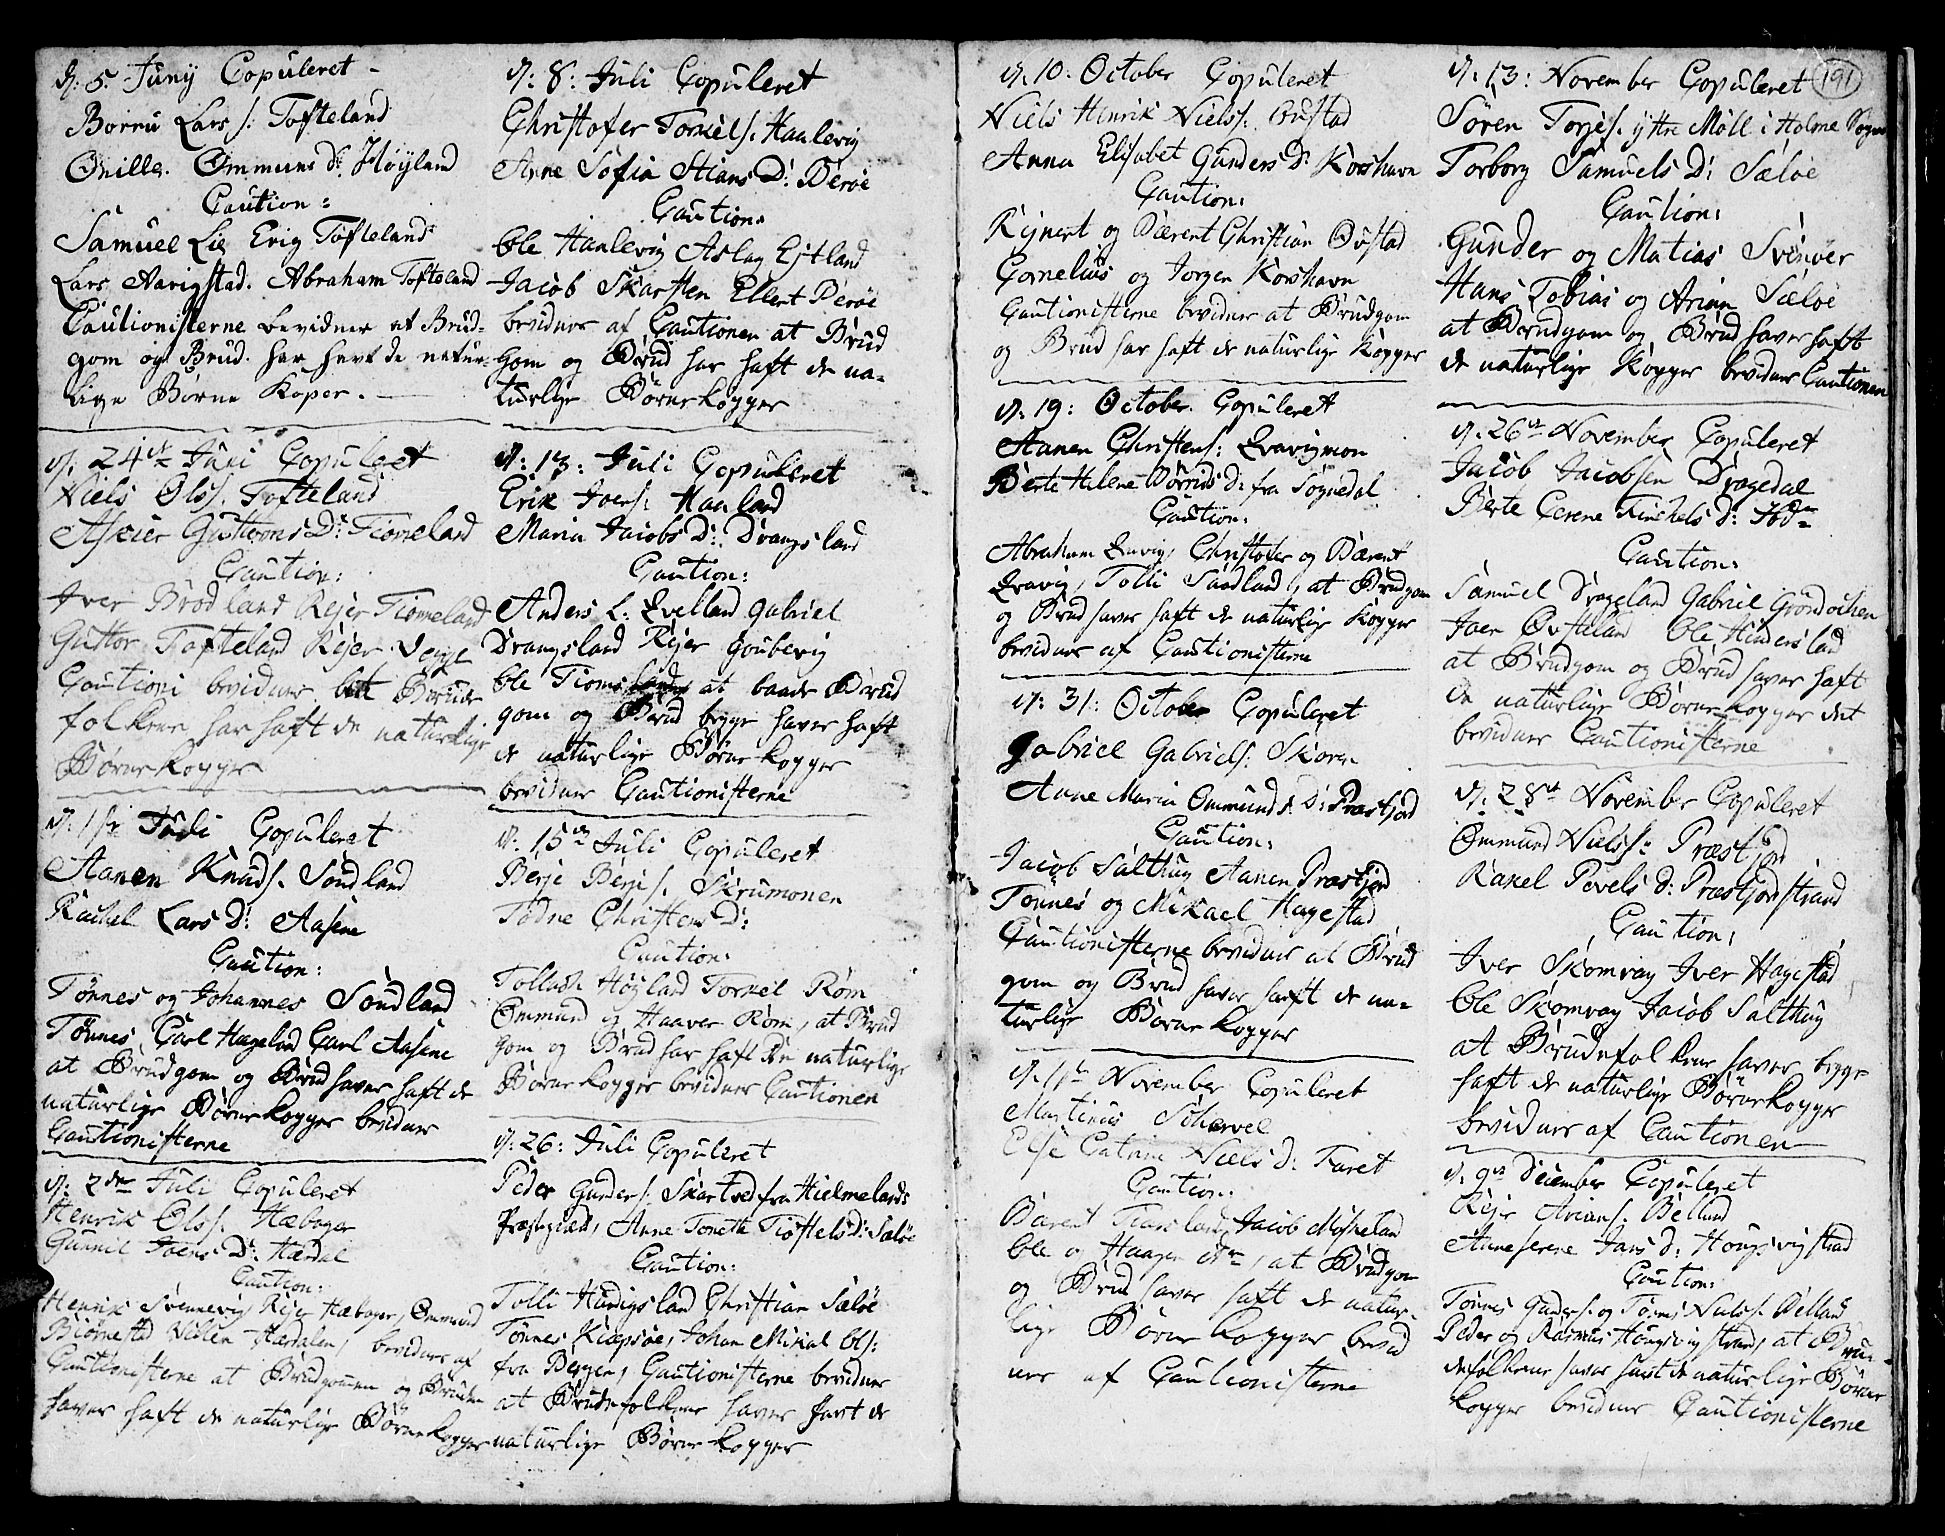 d: 5. Junij Copuleret
Borru Lars s: Tofteland
Onille. Ommuns D: Höyland
Caution:
Samuel Lie Erig Tofteland
Lars Aarigstad. Abraham Tofteland
Cautionisterne bevidner at Brud-
gom og Brud. har havt de natur-
lige Børne Koper.
d. 24de Juni Copuleret
Niels Ols s. Tofteland
Asseier Guttorms D: Tiomeland
Caution:
Iver Brodland Rejer Tiomeland
Guttor Tofteland Rejer
Cautioni bevidner at Brude
folkene har haft de naturlige
Børnekopper
d: 1ste Juli Copuleret
Aanen Knuds. Sondland
Rachel Lars D: Aasene
Caution:
Tønnes og Johannes Sondland
Tønnes, Carl Hageland Carl Aasene
at Brudgom og Brud haver haft de
naturlige Børnekopper bevidner
Cautionisterne
d: 2den Juli Copuleret
Henrik Olss. Hæbager
Gunnil Joens D: Hærdal
Caution:
Henrik Svennevig Rejer Hæbager, Ommund
Biørnestad Villen Hærdalen, bevidnes af
Cautionisterne at Brudgommen og Bruden
haver haft de naturlige Børnekopper
d: 8: Juli Copuleret
Christofer Torkels. Haalevig
Anne Sofia Stians D: Berøe
Caution:
Ole Haalevig Aslag Ejtland
Jacob Skarsten Ellert Berøe
bevidnes af Cautionen at Brud
gom og Brud har haft de na-
turlige Børnekopper
d: 13: Juli Copuleret
Erik Joens: Haaland
Maria Jacobs D: Drangsland
Caution:
Anders L: Qvelland Gabriel
Drangsland Rejer Goubevig
Ole Tioms land at baade Brud
gom og Brud begge haver haft
de naturlige Børnekopper
bevidner Cautionisterne
d: 15de Juli Copuleret
Berje Berjes. Skrumonen
Todne Christens D:
Caution:
Tollach Höyland Torkel Röm
Ommund og Haaver Röm, at Brud
gom og Brud har haft de naturlige
Børnekopper bevidner Cautionen
d: 26: Juli Copuleret
Peder Gunders. Skartved fra Hielmelands
Præstegield, Anne Tonette Tiostels D: Saløe
Caution:
Tolli Hundigsland Christian Sæløe
Tønnes Kiæpsøe, Johan Mikal Ols:
fra Bergen, Cautionisterne bevidner
at Brudefolkene haver havt de
naturlige Børnekopper
d. 10: October Copuleret
Niels Henrik Nielss. Oustad
Anna Elisabet Gunders D: Korshavn
Caution:
Rejnert og Bærent Christian Oustad
Cornelius og Jorgen Korshavn
Cautionisterne bevidner at Brudgom
og Brud har haft de naturlige Kopper
d. 19: October. Copuleret
Aanen Christens: Qvavigmon
Berte Helene Börrils D: fra Sognedal
Caution:
Abraham Qvavig, Christofer og Bærent
Qvavig, Tolli Sandland, at Brudgom
og Brud haver haft de naturlige Kopper
bevidnes af Cautionisterne
d: 31: October Copuleret
Gabriel Gabriels: Skoven
Anne Maria Ommunds D: Præstfjord
Caution:
Jacob Salthug Aanen Præstfjord
Tønnes og Mikael Hagestad
Cautionisterne bevidner at Brud
gom og Brud haver haft de na-
turlige Børnekopper
d. 11te November Copuleret
Martinus Schervel
Else Catrine Niels D: Faret
Caution:
Bærent Tiomsland, Jacob Moseland
Ole og Haagen, at Brudgom
og Brud haver haft de natur-
lige Børnekopper bevid
nes af Cautionisterne
191
d. 13: November Copuleret
Sören Torjes. yttre Möll i Holme Sogn
Torborg Samuels D: Sæløe
Caution:
Gunder og Matias Svinøer
Hans Tobias og Arian Sæløe
at Brudgom og Brud haver haft
de naturlige Kopper bevidner Cautionen
d. 26de November Copuleret
Jacob Jacobsen Dragedal
Berte Cerene Tinchels D:
Caution:
Samuel Drageland Gabriel Grondochen
Joen Ovsteland Ole Hindersland
at Brudgom og Brud haver haft
de naturlige Børnekopper det
bevidner Cautionisterne
d. 28de November Copuleret
Ommund Nielss: Præstfjord
Rakel Povels D: Præstfjordstrand
Caution:
Iver Skomvay Iver Hagestad
Ole Skomvay Jacob Salthug
at Brudefolkene haver begge
haft de naturlige Børnekopper
bevidnes af Cautionen
d. 9de December Copuleret
Rejer Arians. Bølland
Anne Serene Jans D: Hougsvigstrad
Caution:
Tønnes Gunders. og Tønnes Nielss. Bølland
Peder og Rasmus Hougsvigstrand, at Bru-
defolkene haver havt de naturlige Børne
kopper bevidner Cautionisterne